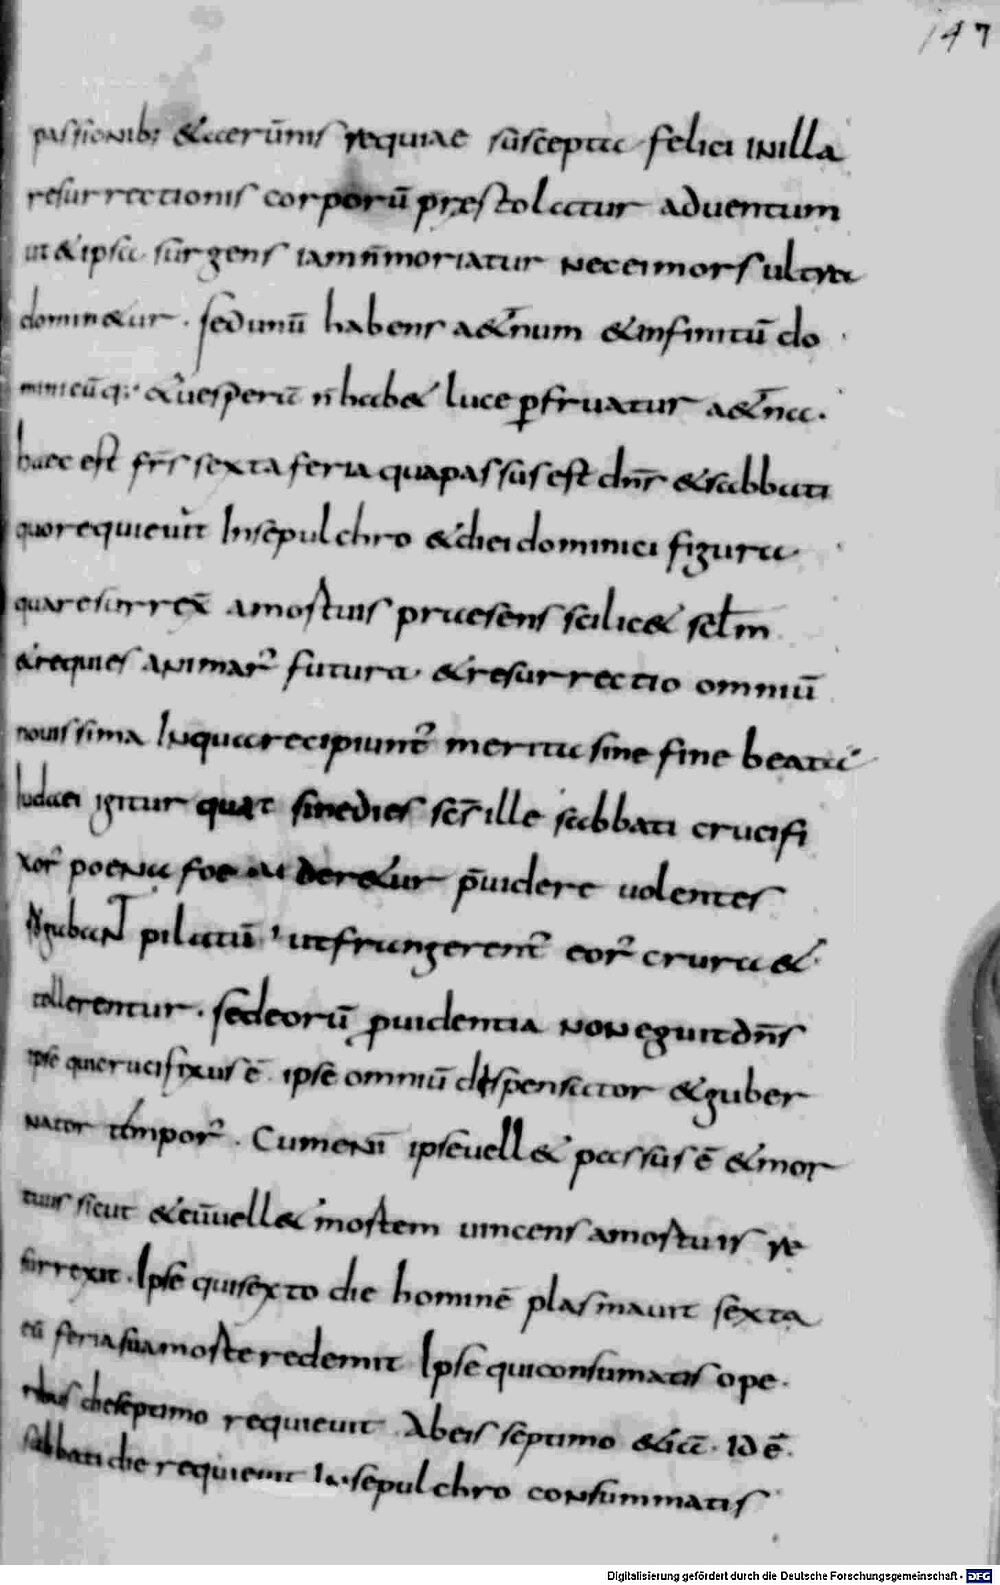 147
passionib; & aerūnis requiae suscepta felici in illa
resurrectionis corporū praestolatur aduentum
ut & ipsa surgens iam n̄ moriatur nec ei mors ultra
domin&ur. sed unū habens a&n̄um & infinitū do
minicū q; & uesperū n̄ hab& luce ꝑfruatur a&n̄a.
haec est fr̄s sexta feria qua passus est dn̄s & sabbati
quo requieuit In sepulchro & diei dominici figura
qua resurrex̄ a mortuis praesens scilic& sclm̄
& requies animar̄ futura. & resurrectio omniū
nouissima In qua recipiunt̄ merita sine fine beata
Iudaei igitur quat sine dies sc̄s ille sabbati crucifi
xor̄ poena foe der&ur p̄uidere uolentes
rogabant pilatū ut frangerent̄ eor̄ crura &
tollerentur. sed eorū ꝓuidentia non eguit dn̄s
ipse qui crucifixus ē. ipse omniū dispensator & guber
nator tēmpor̄. Cum enī ipse uell& passus ē & mor
tuus sicut & cū uell& mortem uincens a mortuis re
surrexit. Ipse qui sexto die hominē plasmauit sexta
eū feria sua morte redemit Ipse qui consumatis ope.
ribus die septimo requieuit Ab eis septimo & ic̄. id ē.
sabbati die requieuit In sepulchro consummatis
Digitalisierung gefördert durch die Deutsche Forschungsgemeinschaft - DFG